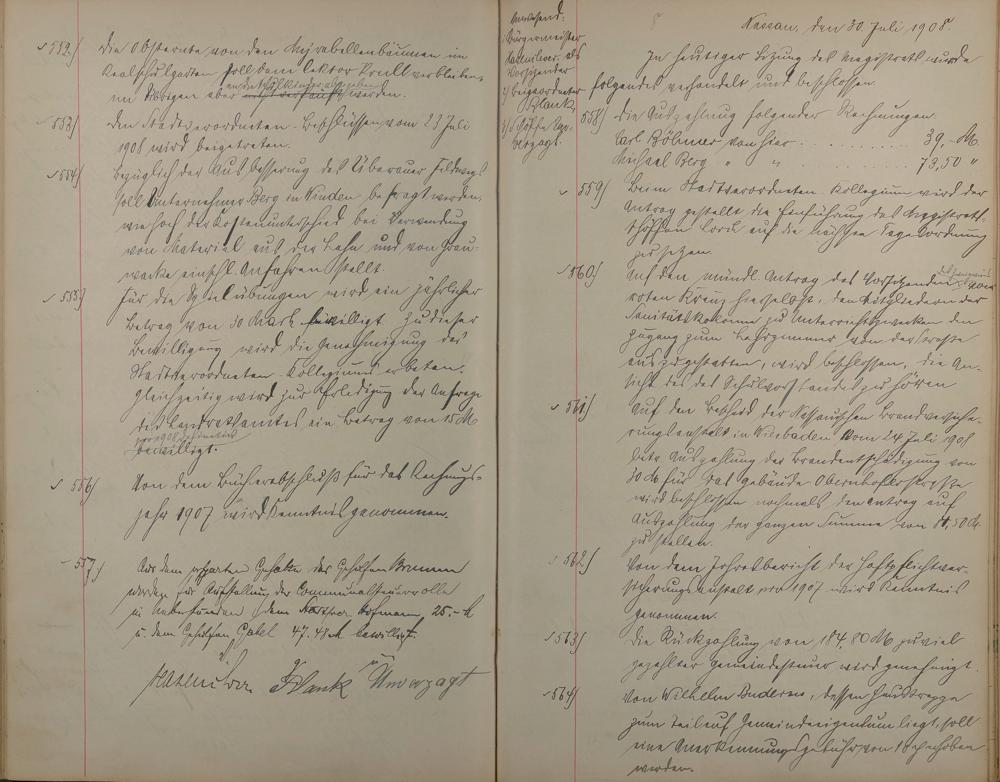 552.) Die Obsternte von den Myrabellenbäumen im
Realschulgarten soll dem Rektor Krull verbleiben,
im Übrigen aber an die Schulkinder abgegeben
werden.
553.) Den Stadtverordneten-Beschlüssen vom 23 Juli
1908 wird beigetreten.
554.) Bezüglich der Ausbesserung des Feldwegs
soll Unternehmer Berg in befragt werden,
wie hoch der Kostenunterschied bei Verwendung
von Material aus der Lahn und von Grau-
wacke einschl. Anfahren stellt.
555.) Für die Spielübungen wird ein jährlicher
Betrag von 30 Mark bewilligt. Zu dieser
Bewilligung wird die Genehmigung des
Stadtverordneten-Kollegiums erbeten.
Gleichzeitig wird zur Erledigung der Anfrage
des Landratsamtes ein Betrag von 15 M
pro 1908
bewilligt.
556) Von dem Bücherabschluß für das Rechnungs-
jahr 1907 wird Kenntnis genommen.
557) Aus dem ersparten Gehalte des Gehülfen
werden für Aufstellung der Communalsteuerrolle
in Ueberstunden dem Hofmann 25.- M
u. dem Gehülfen 47.41 M bewilligt.
v.
Hasenclever Plank Unverzagt
Anwesend:
Bürgermeister
Hasenclever als
Vorsitzender
2) Beigeordneter
Plank
3) Schöffe Un-
verzagt.
Nassau, den 30. Juli 1908.
In heutiger Sitzung des Magistrats wurde
folgendes verhandelt und beschlossen.
558) Die Auszahlung folgender Rechnungen
Carl Böhmer von hier . . . . . . . . . . 39,- M.
Michael Berg " " . . . . . 73,50 "
559) Beim Stadtverordneten-Kollegium wird der
Antrag gestellt die Einführung des Magistrats-
schöffen Lorch auf die nächste Tagesordnung
zu setzen.
560) Auf den mündl. Antrag des Vorsitzenden des Zweigvereins vom
roten Kreuz hierselbst, den Mitgliedern der
Sanitätskolonne zu Unterrichtszwecken den
Zugang zum Lehrzimmer von der Straße
aus zu gestatten, wird beschlossen, die An-
sicht des Schulvorstandes zu hören
561) Auf den Bescheid der Nassauischen Brandversiche-
rungsanstalt in Wiesbaden vom 24 Juli 1908
betr. Auszahlung der Brandentschädigung von
30 M für das Gebäude Obernhoferstrasse
wird beschlossen nochmals den Antrag auf
Auszahlung der ganzen Summe von M.
zu stellen.
562) Von dem Jahresbericht der Haftpflichtver-
sicherungsanstalt pro 1907 wird Kenntnis
genommen.
563) Die Rückzahlung von 184,80 M zuviel
gezahlter Gemeindesteuer wird genehmigt.
564) Von Wilhelm Buderus, dessen Haustreppe
zum Teil auf Gemeindeeigentum liegt, soll
eine Anerkennungsgebühr von 1 M erhoben
werden.